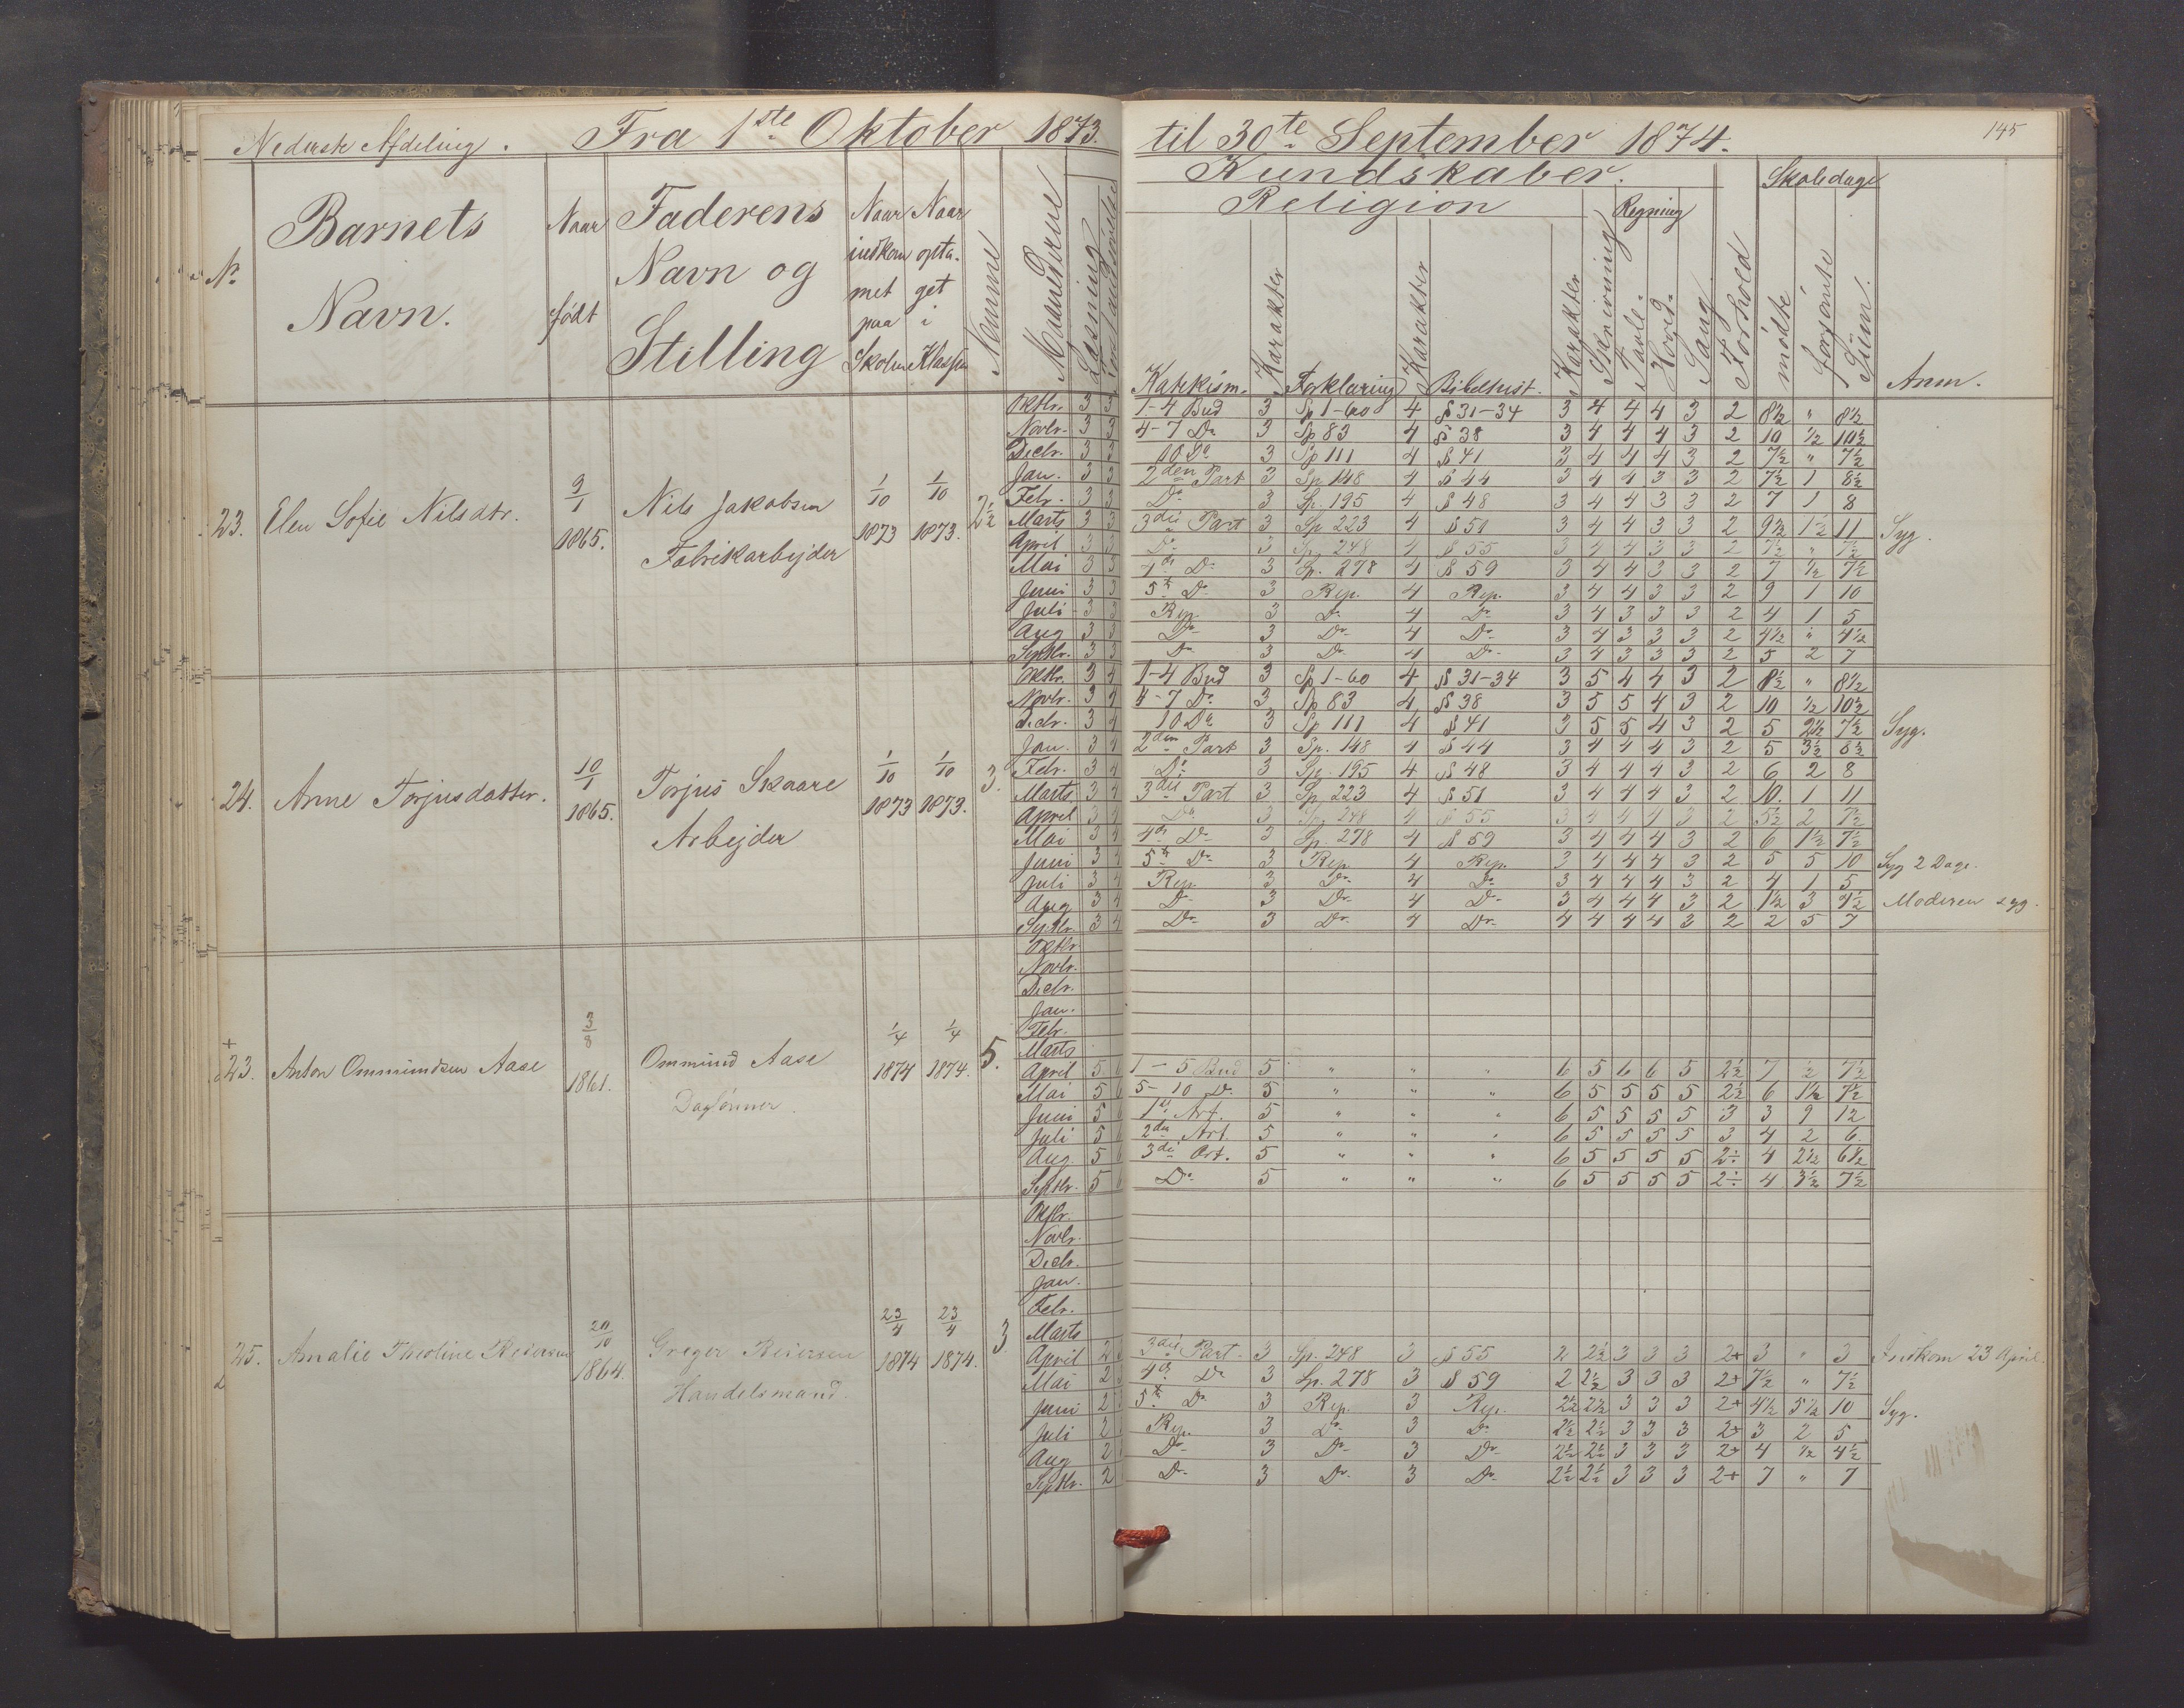 Nederste Afdeling. Fra 1ste Oktober 1873. til 30te September 1874. 145
No. Barnets Navn. Naar født Faderens Navn og Stilling Naar indkommet paa Skolen Naar optaget i Klassen Nemme Maanederne Læsning
Kundskaber. Skoledage
Religion Regning
Katekism. Karakter Forklaring Karakter Bibelhist. Karakter Skrivning Tavle- Hoved- Sang Forhold mødte forsømte Sum. Anm.
23. Elen Sofie Nilsdtr. 9/1 1865. Nils Jakobsen Fabrikarbejder 1/10 1873 1/10 1873. 2½
Oktbr. 3 3 1-4 Bud 3 Sp 1-60 4 § 31-34 3 4 4 4 3 2 8½ " 8½
Novbr. 3 3 4-7 Do 3 Sp 83 4 § 38 3 4 4 4 3 2 10 ½ 10½
Decbr. 3 3 10 Do 3 Sp 111 4 § 41 3 4 4 4 3 2 7½ " 7½
Jan. 3 3 2den Part 3 Sp 148 4 § 44 3 4 4 3 3 2 7½ 1 8½
Febr. 3 3 Do 3 Sp. 195 4 § 48 3 4 4 3 3 2 7 1 8
Marts 3 3 3die Part 3 Sp 223 4 § 51 3 4 4 3 3 2 9½ 1½ 11 Syg.
April 3 3 Do 3 Sp. 248 4 § 55 3 4 4 3 3 2 7½ " 7½
Mai 3 3 4de Do 3 Sp. 278 4 § 59 3 4 4 3 3 2 7 ½ 7½
Juni 3 3 5te Do 3 Rep. 4 Rep. 3 4 4 3 3 2 9 1 10
Juli 3 3 Rep. 3 Do 4 Do 3 4 3 3 3 2 4 1 5
Aug 3 3 Do 3 Do 4 Do 3 4 3 3 3 2 4½ " 4½
Septbr. 3 3 Do 3 Do 4 Do 3 4 3 3 3 2 5 2 7
24. Anne Torjusdatter. 10/1 1865. Torjus Skaare Arbejder 1/10 1873 1/10 1873. 3.
Oktbr. 3 4 1-4 Bud 3 Sp 1-60 4 § 31-34 3 5 4 4 3 2 8½ " 8½
Novbr. 3 4 4-7 Do 3 Sp 83 4 § 38 3 5 5 4 3 2 10 ½ 10½
Decbr. 3 4 10 Do 3 Sp 111 4 § 41 3 5 5 4 3 2 5 2½ 7½ Syg.
Jan. 3 4 2den Part 3 Sp. 148 4 § 44 3 4 4 4 3 2 5 3½ 8½
Febr. 3 4 Do 3 Sp. 195 4 § 48 3 4 4 4 3 2 6 2 8
Marts 3 4 3die Part 3 Sp 223 4 § 51 3 4 4 4 3 2 10. 1 11
April 3 4 Do 3 Sp. 248 4 § 55 3 4 4 4 3 2 5½ 2 7½
Mai 3 4 4de Do 3 Sp. 278 4 § 59 3 4 4 4 3 2 6 1½ 7½
Juni 3 4 5te Do 3 Rep. 4 Rep. 3 4 4 4 3 2 5 5 10 Syg 2 Dage.
Juli 3 4 Rep. 3 Do 4 Do 3 4 4 4 3 2 4 1 5
Aug 3 4 Do 3 Do 4 Do 3 4 4 4 3 2 1½ 3 4½ Moderen syg.
Septbr. 3 4 Do 3 Do 4 Do 4 4 4 4 3 2 2 5 7
+ 23. Anton Ommundsen Aase 3/8 1861. Ommund Aase Daglønner. 1/4 1874 1/4 1874. 5.
Oktbr.
Novbr.
Decbr.
Jan.
Febr.
Marts
April 5 6 1-5 Bud 5 " " " 6 5 6 6 5 2½ 7 ½ 7½
Mai 5 6 5-10 Do 5 " " " 6 5 5 5 5 2½ 6 1½ 7½
Juni 5 6 1ste Art. 5 " " " 6 5 5 5 5 3 3 9 12
Juli 5 6 2den Art. 5 " " " 6 5 5 5 5 3 4 2 6
Aug. 5 6 3die Art. 5 " " " 6 5 5 5 5 2÷ 4 2½ 6½
Septbr. 5 6 Do 5 " " " 6 5 5 5 5 2÷ 4 3½ 7½
25. Amalie Theoline Reiersen 20/10 1864. Greger Reiersen Handelsmand. 23/4 1874 23/4 1874. 3
Oktbr.
Novbr.
Decbr.
Jan.
Febr.
Marts
April 2 3die Part. 3 Sp. 248 3 § 55 2 2½ 3 3 3 2+ 3 " 3 Indkom 23 April.
Mai 2 4de Do 3 Sp. 278 3 § 59 2 2½ 3 3 3 2+ 7½ " 7½
Juni 2 5te Do 3 Rep. 3 Rep. 2½ 2½ 3 3 3 2+ 4½ 5½ 10 Syg.
Juli 2 Rep. 3 Do 3 Do 2½ 2½ 3 3 3 2+ 3 2 5
Aug 2 Do 3 Do 3 Do 2½ 2½ 3 3 3 2+ 4 ½ 4½
Septbr. 2 Do 3 Do 3 Do 2½ 2½ 3 3 3 2+ 7 " 7